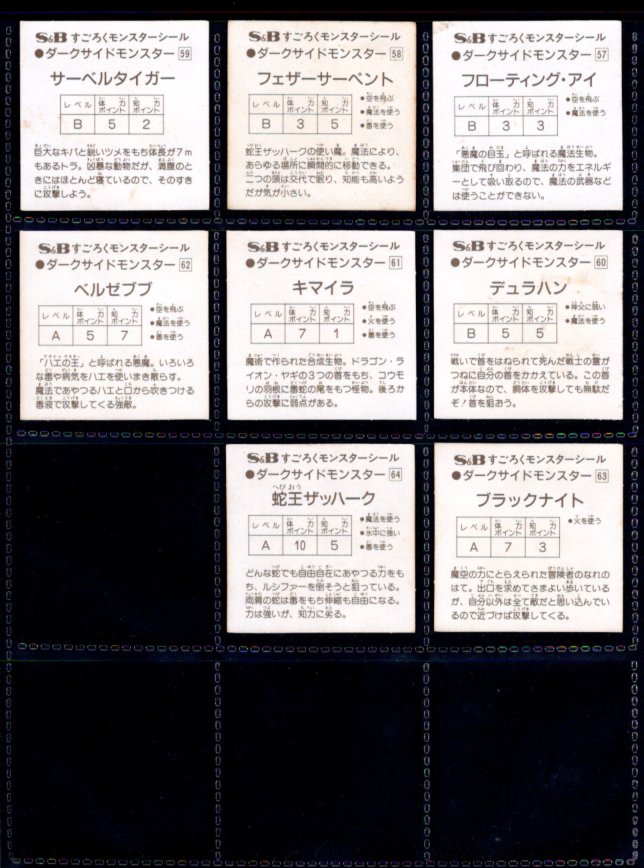 S&B すごろくモンスターシール
●ダークサイドモンスター 59
サーベルタイガー
レベル 体力ポイント 知力ポイント
B 5 2
巨大なキバと鋭いツメをもち体長が7m
もあるトラ。凶暴な動物だが、満腹のと
きにはほとんど寝ているので、そのすき
に攻撃しよう。
S&B すごろくモンスターシール
●ダークサイドモンスター 58
フェザーサーペント
レベル 体力ポイント 知力ポイント
B 3 5
●空を飛ぶ
●魔法を使う
●毒を使う
蛇王ザッハークの使い魔。魔法により、
あらゆる場所に瞬間的に移動できる。
二つの頭は交代で眠り、知能も高いよう
だが気が小さい。
S&B すごろくモンスターシール
●ダークサイドモンスター 57
フローティング・アイ
レベル 体力ポイント 知力ポイント
B 3 3
●空を飛ぶ
●魔法を使う
「悪魔の目玉」と呼ばれる魔法生物。
集団で飛び回わり、魔法の力をエネルギ
ーとして吸い取るので、魔法の武器など
は使うことができない。
S&B すごろくモンスターシール
●ダークサイドモンスター 62
ベルゼブブ
レベル 体力ポイント 知力ポイント
A 5 7
●空を飛ぶ
●魔法を使う
●毒を使う
「ハエの王」と呼ばれる悪魔。いろいろ
な毒や病気をハエを使いまき散らす。
魔法であやつるハエと口から吹きつける
毒液で攻撃してくる強敵。
S&B すごろくモンスターシール
●ダークサイドモンスター 61
キマイラ
レベル 体力ポイント 知力ポイント
A 7 1
●空を飛ぶ
●火を使う
●毒を使う
魔術で作られた合成生物。ドラゴン・ラ
イオン・ヤギの3つの首をもち、コウモ
リの羽根に毒蛇の尾をもつ怪物。後ろか
らの攻撃に弱点がある。
S&B すごろくモンスターシール
●ダークサイドモンスター 60
デュラハン
レベル 体力ポイント 知力ポイント
B 5 5
●神父に弱い
●魔法を使う
戦いで首をはねられて死んだ戦士の霊が
つねに自分の首をかかえている。この首
が本体なので、胴体を攻撃しても無駄だ
ぞ!首を狙おう。
S&B すごろくモンスターシール
●ダークサイドモンスター 64
蛇王ザッハーク
レベル 体力ポイント 知力ポイント
A 10 5
●魔法を使う
●水中に強い
●毒を使う
どんな蛇でも自由自在にあやつる力をも
ち、ルシファーを倒そうと狙っている。
両肩の蛇は毒をもち伸縮も自由になる。
力は強いが、知力に劣る。
S&B すごろくモンスターシール
●ダークサイドモンスター 63
ブラックナイト
レベル 体力ポイント 知力ポイント
A 7 3
●火を使う
魔空の力にとらえられた冒険者のなれの
はて。出口を求めてさまよい歩いている
が、自分以外は全て敵だと思い込んでい
るので近づけば攻撃してくる。